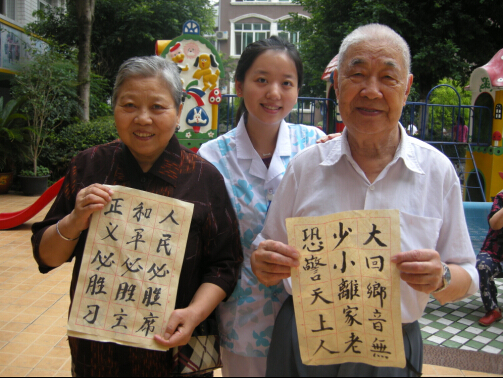 人民必胜席
和军必胜主
正义必胜习
大回鄉音無
少小離家老
恐警天上人